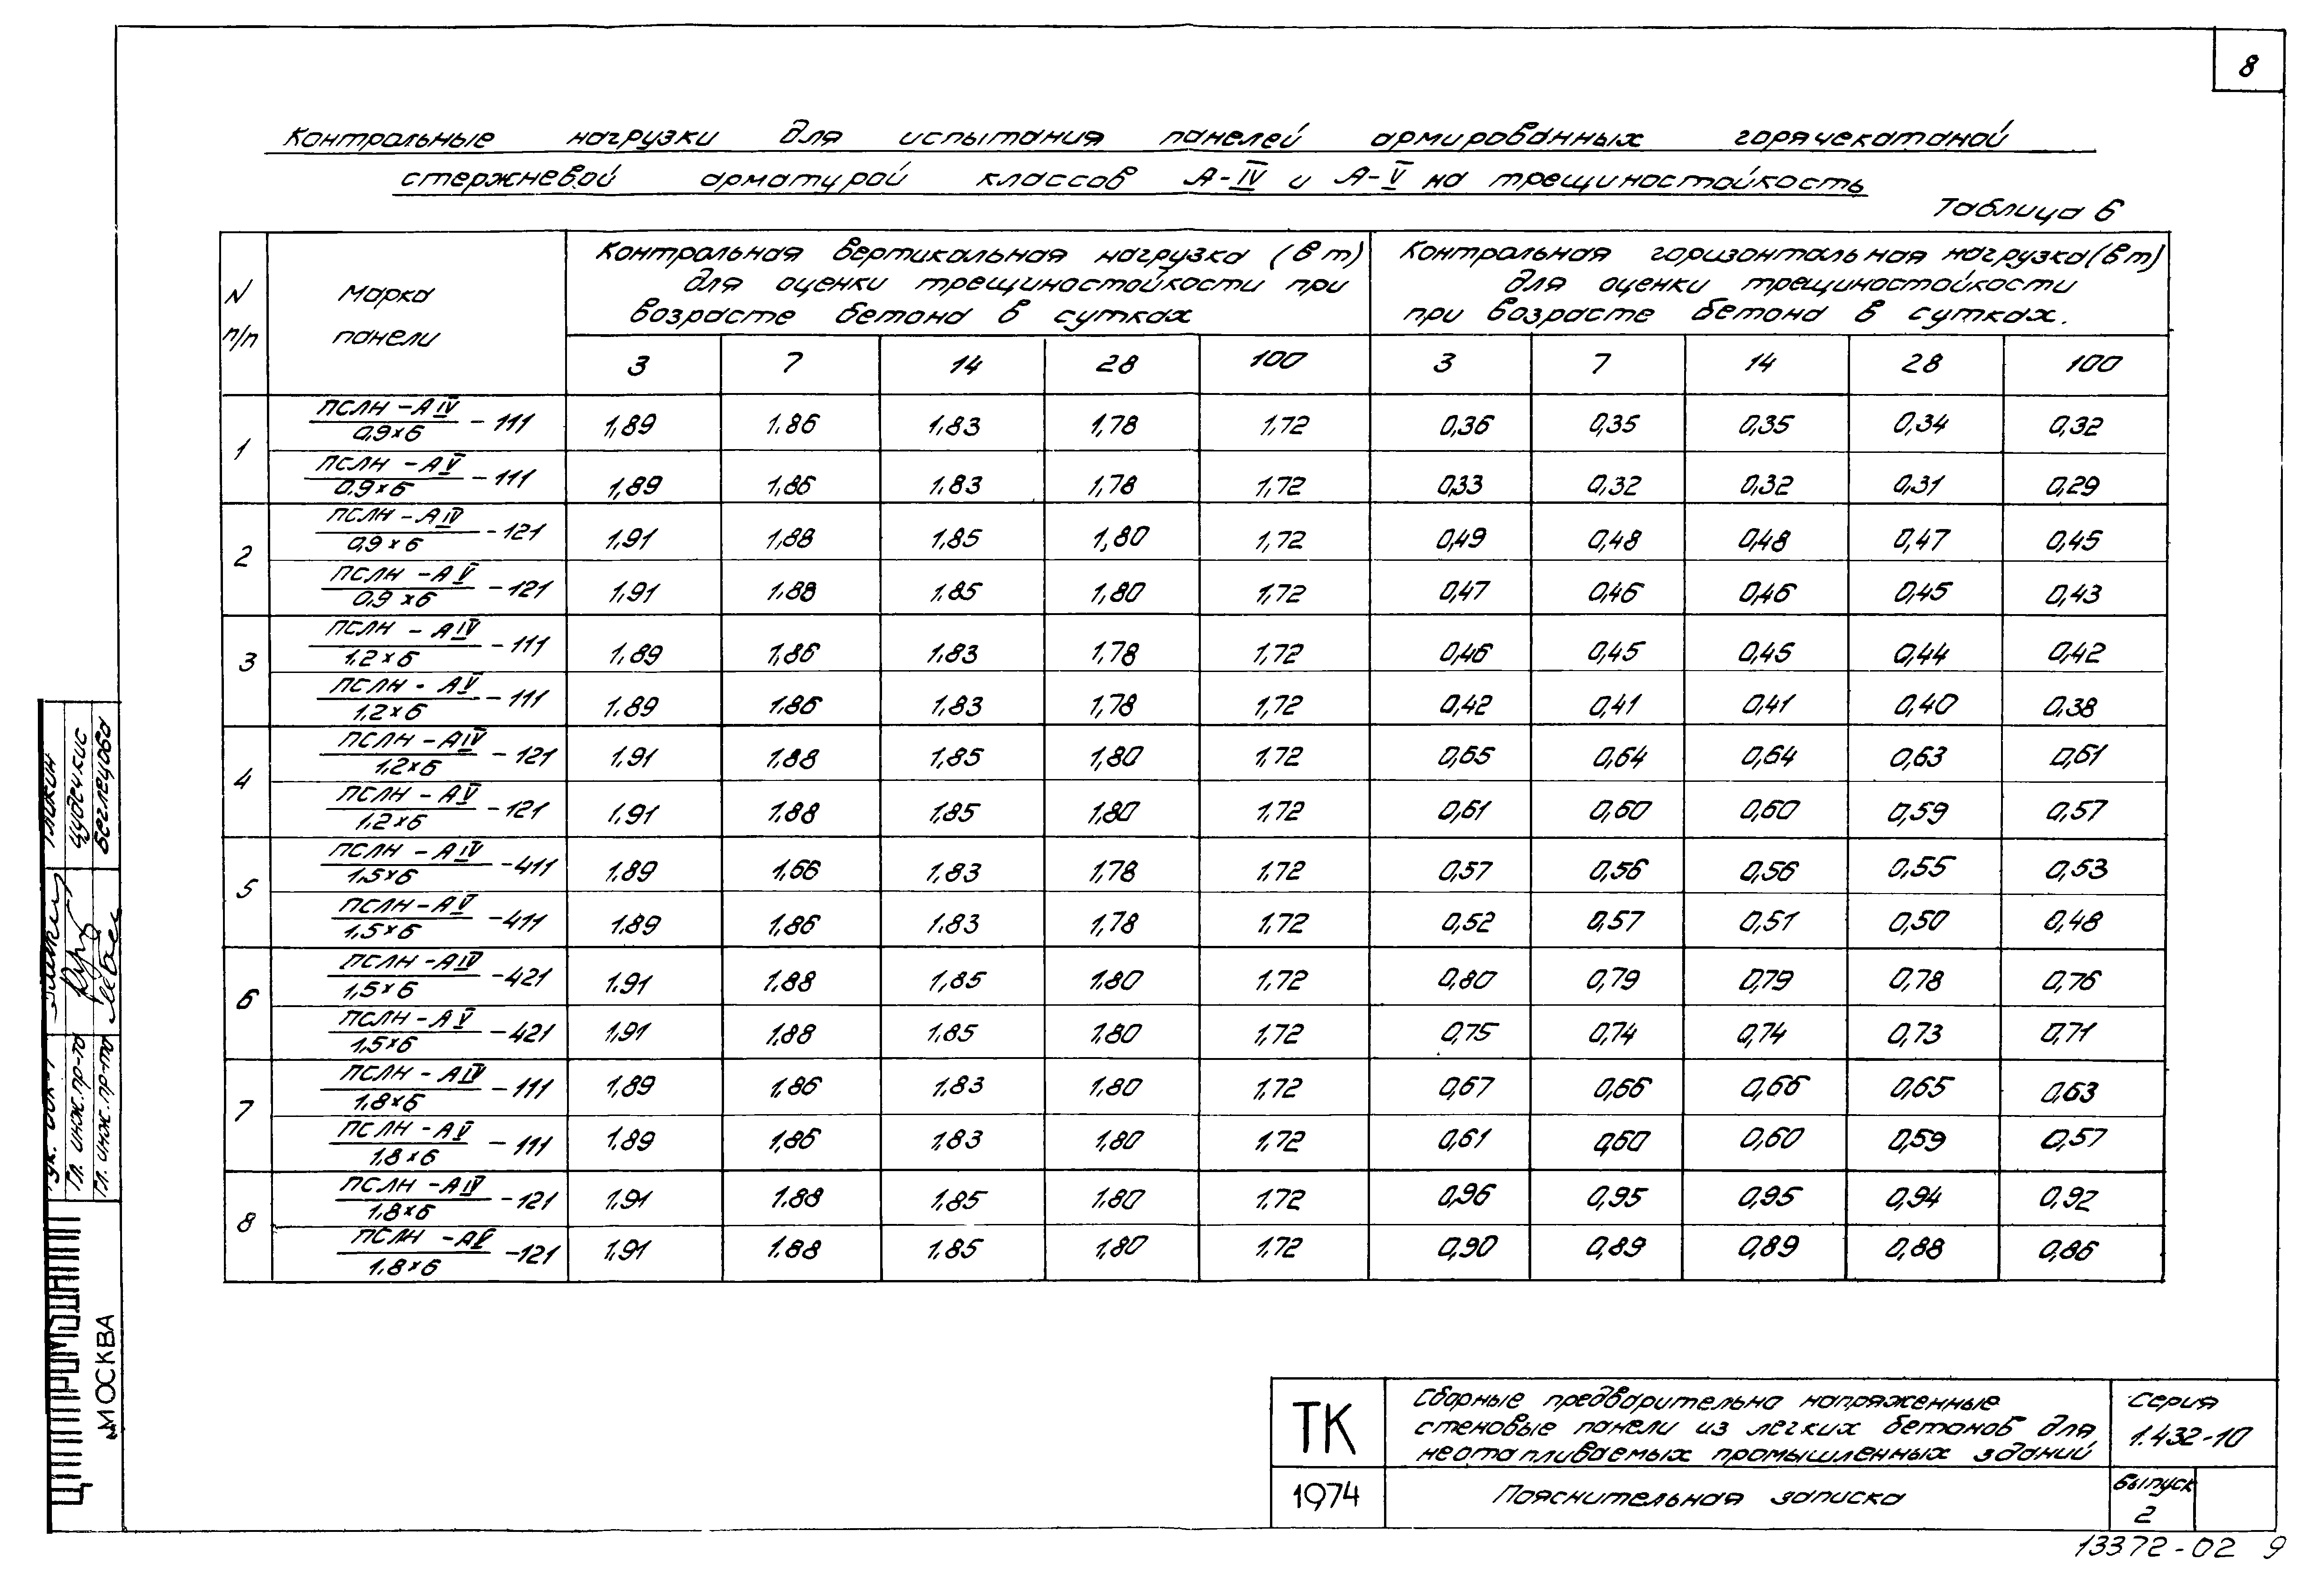 8
Контрольные нагрузки для испытания панелей армированных горячекатаной
стержневой арматурой классов А-IV и А-V на трещиностойкость
Таблица 6
N п/п
Марка панели
Контрольная вертикальная нагрузка (в т)
для оценки трещиностойкости при
возрасте бетона в сутках
Контрольная горизонтальная нагрузка (в т)
для оценки трещиностойкости
при возрасте бетона в сутках.
3 7 14 28 100 3 7 14 28 100
1 ПСЛН-АIV/0,9×6-111 1,89 1.86 1.83 1,78 1,72 0,36 0,35 0,35 0,34 0,32
ПСЛН-АV/0,9×6-111 1,89 1,86 1.83 1,78 1,72 0,33 0,32 0,32 0,31 0,29
2 ПСЛН-АIV/0,9×6-121 1.91 1,88 1,85 1,80 1,72 0,49 0,48 0,48 0,47 0,45
ПСЛН-АV/0,9×6-121 1.91 1.88 1.85 1,80 1,72 0,47 0,46 0,46 0,45 0,43
3 ПСЛН-АIV/1,2×6-111 1.89 1,86 1.83 1.78 1,72 0,46 0,45 0,45 0,44 0,42
ПСЛН-АV/1,2×6-111 1.89 1.86 1,83 1,78 1,72 0,42 0,41 0,41 0,40 0,38
4 ПСЛН-АIV/1,2×6-121 1.91 1.88 1.85 1,80 1.72 0,65 0,64 0,64 0,63 0,61
ПСЛН-АV/1,2×6-121 1.91 1.88 1.85 1.80 1.72 0,61 0,60 0,60 0,59 0,57
5 ПСЛН-АIV/1,5×6-411 1.89 1.66 1,83 1,78 1.72 0,57 0,56 0,56 0,55 0,53
ПСЛН-АV/1,5×6-411 1.89 1.86 1.83 1,78 1.72 0,52 0,57 0,51 0,50 0,48
6 ПСЛН-АIV/1,5×6-421 1.91 1.88 1,85 1.80 1.72 0,80 0,79 0,79 0,78 0,76
ПСЛН-АV/1,5×6-421 1.91 1.88 1.85 1.80 1.72 0,75 0,74 0,74 0,73 0,71
7 ПСЛН-АIV/1.8×6-111 1.89 1.86 1.83 1.80 1.72 0,67 0,66 0,66 0,65 0,63
ПСЛН-АV/1.8×6-111 1.89 1.86 1.83 1.80 1.72 0,61 0,60 0,60 0,59 0,57
8 ПСЛН-АIV/1,8×6-121 1.91 1.88 1.85 1.80 1.72 0,96 0,95 0,95 0,94 0,92
ПСЛН-АV/1.8×6-121 1.91 1.88 1.85 1.80 1.72 0,90 0,89 0,89 0,88 0,86
Цудечкис
Беглецова
Гл. инж. пр-та
Гл. инж. пр-та
ЦНИИПРОМЗДАНИЙ
МОСКВА
ТК
1974
Сборные предварительно напряженные
стеновые панели из легких бетонов для
неотапливаемых промышленных зданий
Пояснительная записка
Серия
1.432-10
Выпуск
2
13372-02 9